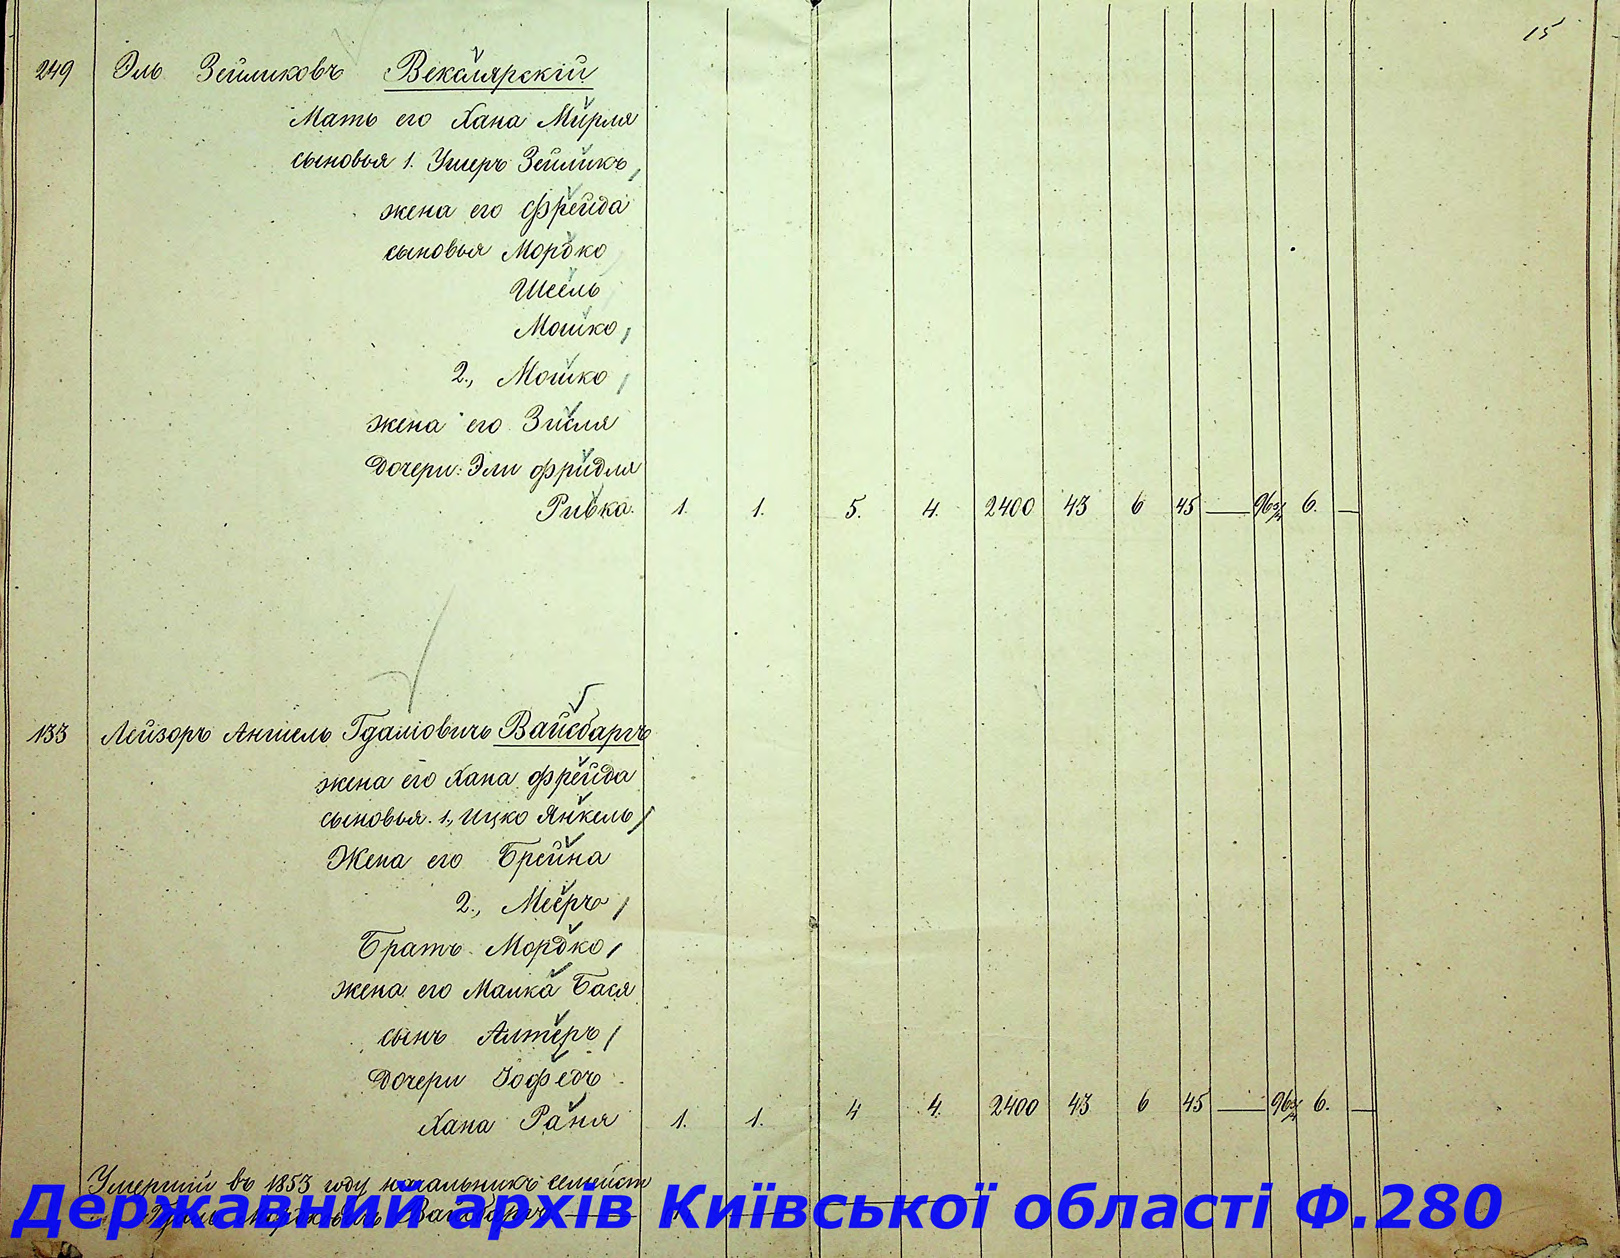 15
249 Эль Зейликовъ Векслярскій
Мать его Хана Мирля
сыновья 1. Умеръ Зейликъ,
жена его Фрейда
сыновья Мордко
Шеель
Мошко,
2., Мошко,
жена его Зисля
Дочери: Эли Фридля
Ривка. 1. 1. 5. 4. 2400 43 6 45 — 96¾ 6. —
133 Лейзоръ Аншель Гдаліовичъ Вайсбаргъ
жена его Хана Фрейда
сыновья. 1., Ицко Янкель,
Жена его Брейна
2., Мееръ,
Братъ Мордко,
жена его Малка Бася
сынъ Алтеръ,
Дочери
Хана Раня 1. 1. 4 4. 2400 43 6 45 — 96¾ 6. —
Умершій въ 1853 году начальникъ семейст
Вайсбаргъ
Державний архів Київської області Ф.280